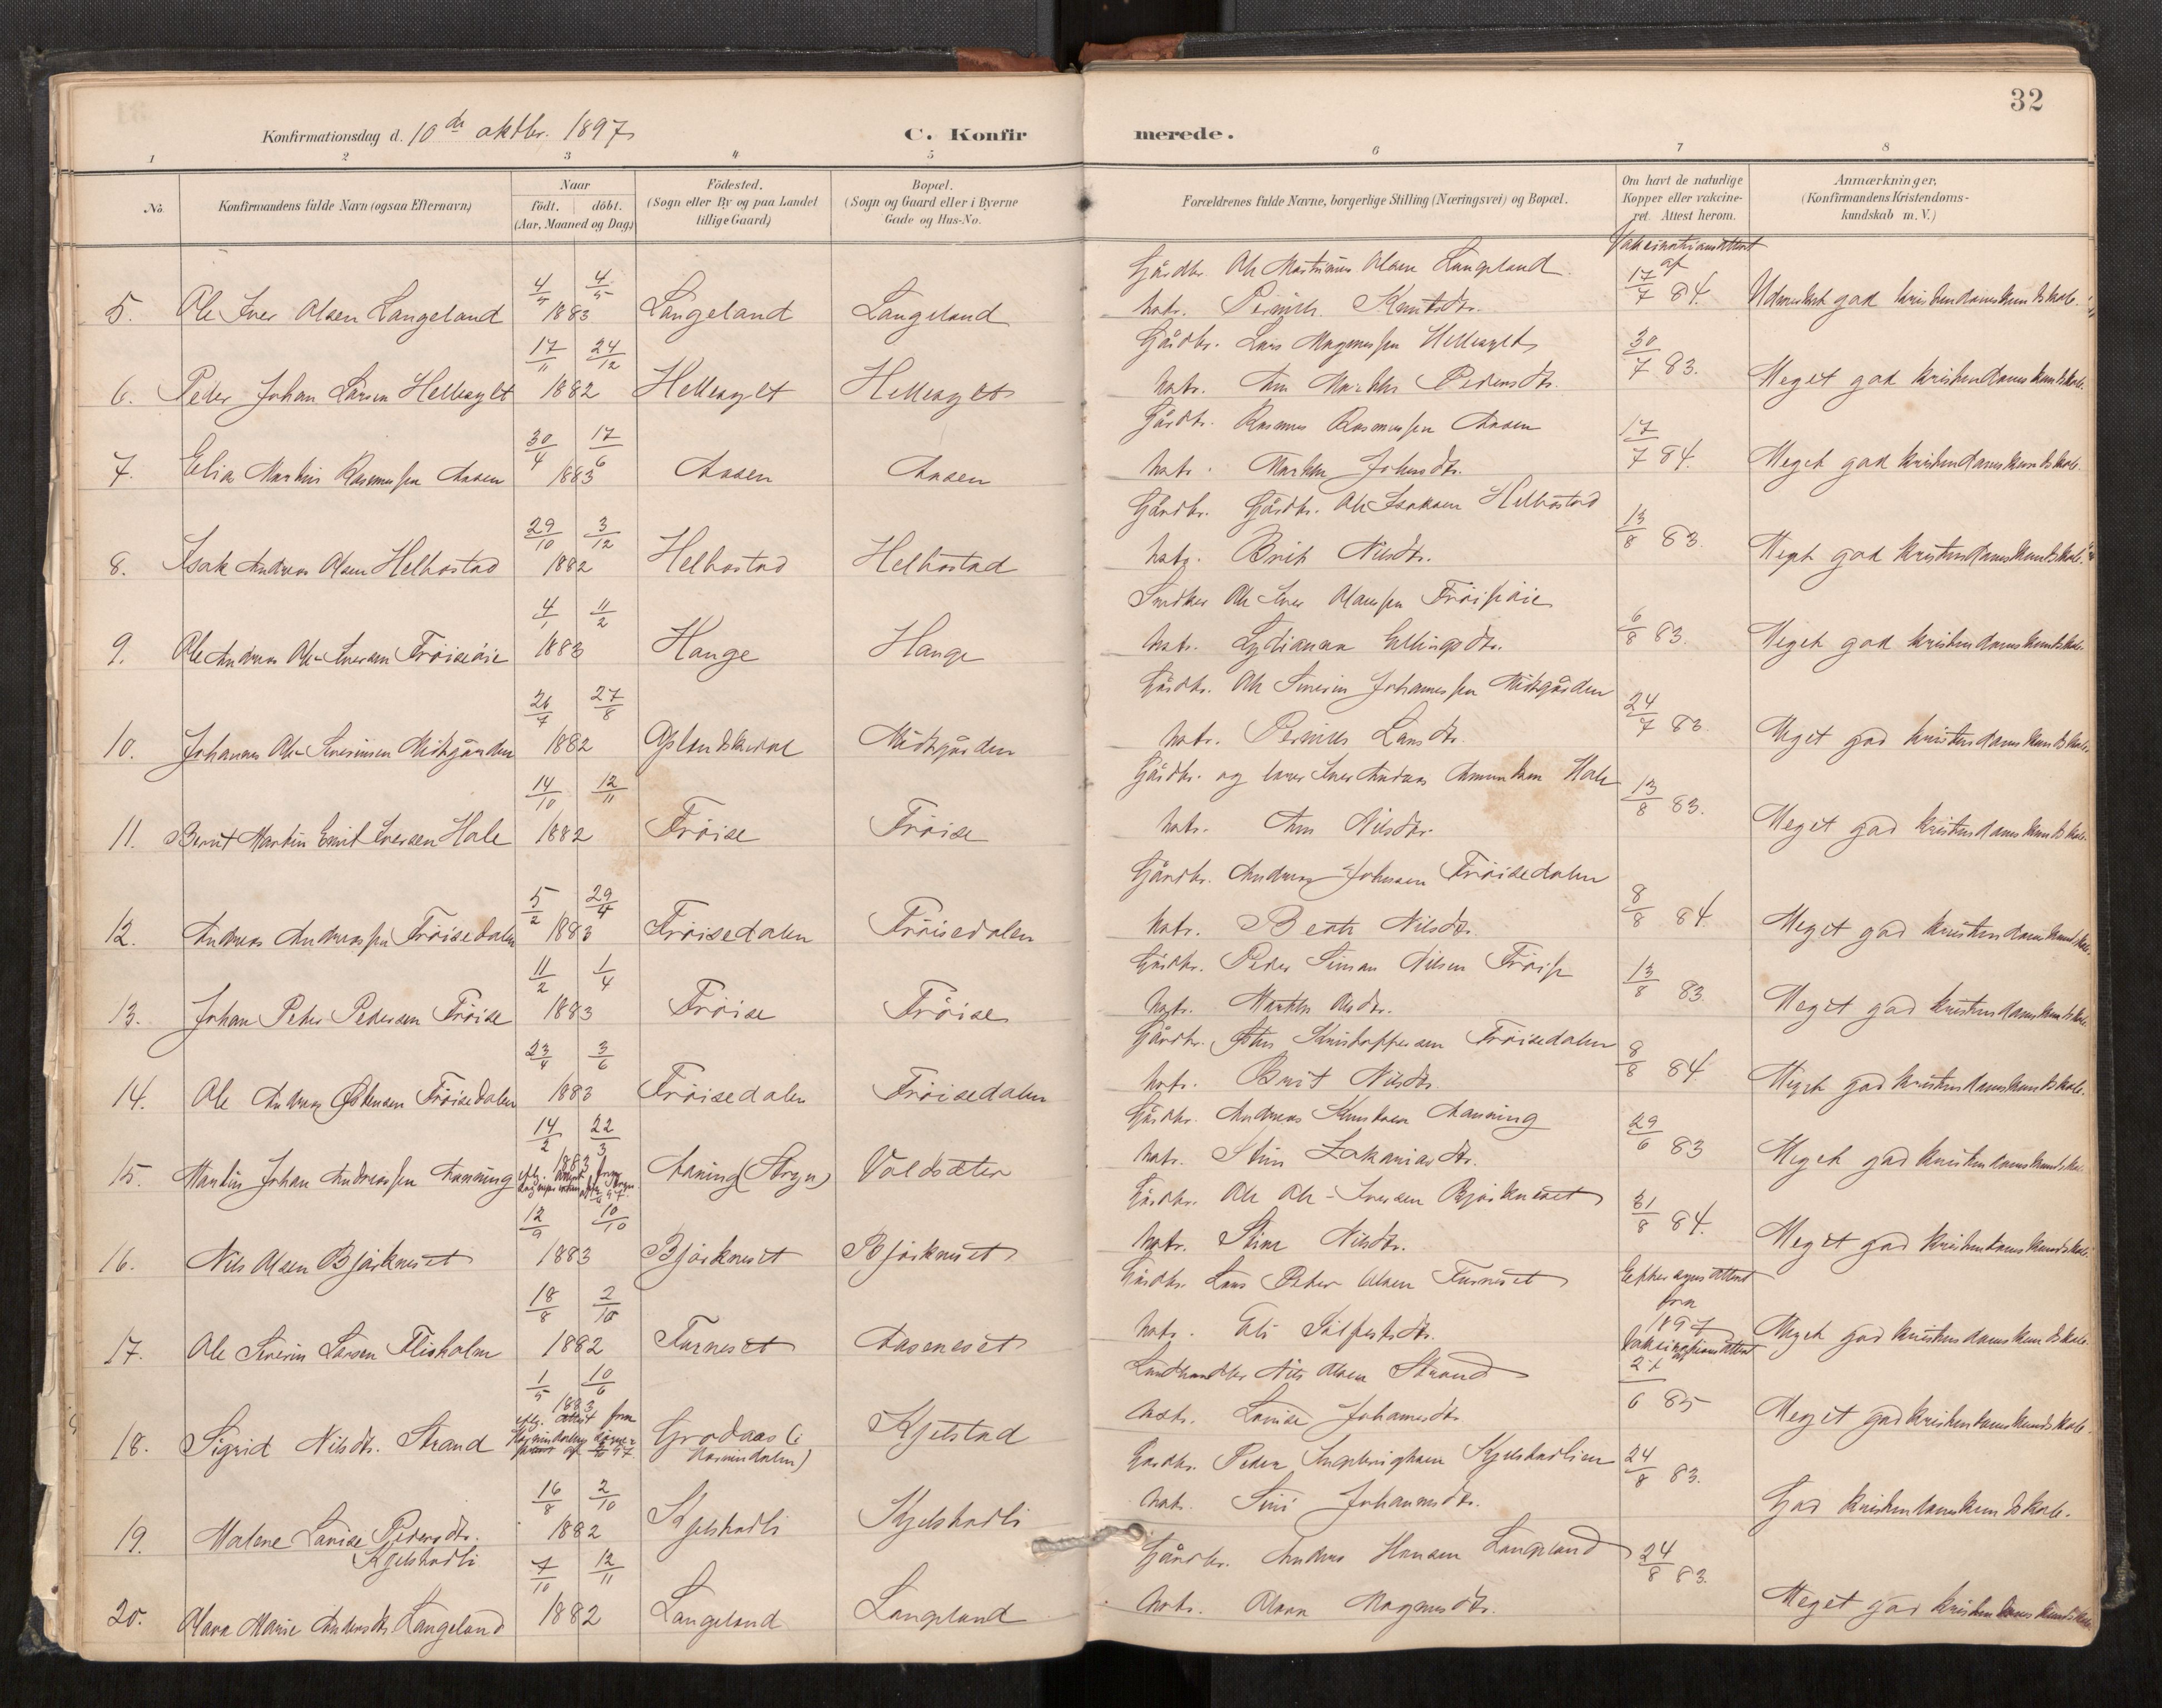 32
Konfirmationsdag d. 10de oktbr. 1897
C. Konfirmerede.
1 2 3 4 5 6 7 8
No.
Konfirmandens fulde Navn (ogsaa Efternavn)
Naar
født. döbt.
(Aar, Maaned og Dag)
Födested.
(Sogn eller By og paa Landet
tillige Gaard)
Bopæl.
(Sogn og Gaard eller i Byerne
Gade og Hus-No.
Forældrenes fulde Navne, borgerlige Stilling (Næringsvei) og Bopæl.
Om havt de naturlige
Kopper eller vakcine-
ret. Attest herom.
Anmærkninger,
(Konfirmandens Kristendoms-
kundskab m. V.)
Vakcinationsattest af
5. Ole Iver Olsen Langeland 4/5 4/5 1883 Langeland Langeland
Gårdbr. Ole Martinus Olsen Langeland
hstr. Pernille Knutsdtr.
17/7 84. Udmerket god kristendomskundskab.
6. Peder Johan Larsen Hellesylt 17/11 24/12 1882 Hellesylt Hellesylt
Gårdbr. Lars Magnussen Hellesylt
hstr. Ane Marthe Pedersdtr.
30/7 83. Meget god kristendomskundskab
7. Elias Martin Rasmussen Aasen 30/4 17/6 1883 Aasen Aasen
Gårdbr. Rasmus Rasmussen Aasen
hstr. Marthe Johnsdtr.
17/7 84. Meget god kristendomskundskab
8. Isak Andreas Olsen Helbostad 29/10 3/12 1882 Helbostad Helbostad
Gårdbr. Gårdbr. Ole Isaksen Helbostad
hstr. Brit Nilsdtr.
13/8 83. Meget god kristendomskundskab.
9. Ole Andreas Ole-Iversen Fröiseöie 4/1 11/2 1883 Hauge Hauge
Ole Iver Olaussen Fröisöie
hstr. Lydianna Ellingsdtr.
6/8 83. Meget god kristendomskundskab
10. Johannes Ole-Severinsen Midtgården 26/7 27/8 1882 Midtgården
Gårdbr. Ole Severin Johannessen Midtgården
hstr. Pernille Larsdtr.
24/7 83. Meget god kristendomskundskab
11. Bernt Martin Emil Iversen Hole 14/10 12/11 1882 Fröise Fröise
Gårdbr. og lærer Iver Andreas Amundsen Hole
hstr. Ane Nilsdtr.
13/8 83. Meget god kristendomskundskab.
12. Andreas Andreassen Fröisedalen 5/2 29/4 1883 Fröisedalen Fröisedalen
Gårdbr. Andreas Johnsen Fröisedalen
hstr. Berte Nilsdtr.
8/8 84 Meget god kristendomskundskab
13. Johan Peter Pedersen Fröise 11/2 1/4 1883 Fröise Fröise
Gårdbr. Peder Simon Nilsen Fröise
hstr. Marthe Olsdtr.
13/8 83 Meget god kristendomskundskab.
14. Ole Andreas Østensen Fröisedalen 23/4 3/6 1883 Fröisedalen Fröisedalen
Gårdbr. Østen Kristoffersen Fröisedalen
hstr. Brit Nilsdtr.
8/8 84. Meget god kristendomskundskab.
15. Martin Johan Andreassen Aanning 14/2 22/3 1883 Aaning (Stryn) Voldsæter
Gårdbr. Andreas Knutsen Aanning
hstr. Stine Zakariasdtr.
29/6 83 Meget god kristendomskundskab
16. Nils Olsen Björkneset 12/9 10/10 1883 Björkneset Björkneset
Gårdbr. Ole Ole-Iversen Björkneset
hstr. Stine Nilsdtr.
31/8 84. Meget god kristendomskundskab.
17. Ole Severin Larsen Flisholm 18/8 2/10 1882 Furneset Aaseneset
Gårdbr. Lars Peter Olsen Furneset
hstr. Eli
Eftersynsattest fra 1897 Meget god kristendomskundskab.
18. Sigrid Nilsdtr. Strand 1/5 10/6 1883 Grodaas (i Hornindalen) Kjelstad
Landhandler Nils Olsen Strand
hstr. Lovise Johannesdtr.
Vakcinationsattest 21/6 85 Meget god kristendomskundskab.
19. Malene Lovise Pedersdtr. Kjelstadli 16/8 2/10 1882 Kjelstadli Kjelstadli
Gårdbr. Peder Ingebrigtsen Kjelstadlien
hstr. Sini Johannesdtr.
24/8 83. God kristendomskundskab.
20. Olava Marie Andersdtr. Langeland 7/10 12/11 1882 Langeland Langeland
Gårdbr. Anders Hansen Langeland
hstr. Olava Magnusdtr.
24/8 83. Meget god kristendomskundskab